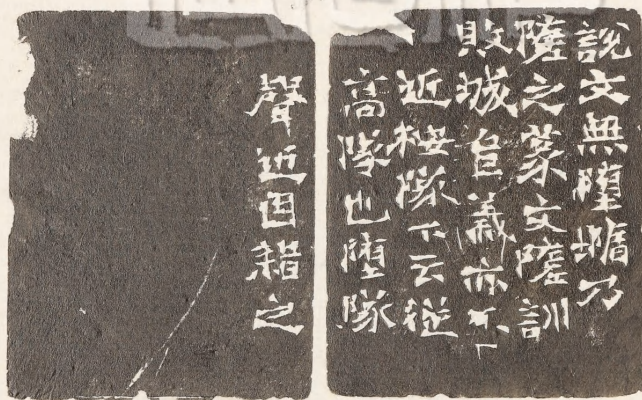 說文無墮乃
隓之篆文隓訓
敗城𨸏義亦不
近桉隊下云從
高隊也墮隊
聲近因耤之